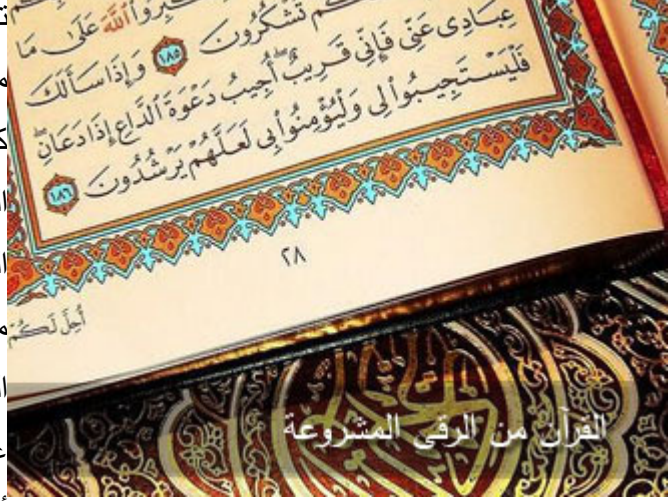 اللَّهَ عَلَىٰ مَا
تَشْكُرُونَ ١٨٥ وَإِذَا سَأَلَكَ
عِبَادِي عَنِّي فَإِنِّي قَرِيبٌ أُجِيبُ دَعْوَةَ الدَّاعِ إِذَا دَعَانِ
فَلْيَسْتَجِيبُوا لِي وَلْيُؤْمِنُوا بِي لَعَلَّهُمْ يَرْشُدُونَ ١٨٦
٢٨
أُحِلَّ لَكُمْ
القرآن من الرقى المشروعة